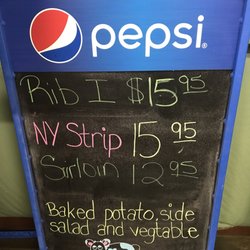 pepsi
Rib I $15.95
NY Strip 15 95
Sirloin 12.95
Baked potato, side
salad and vegtable